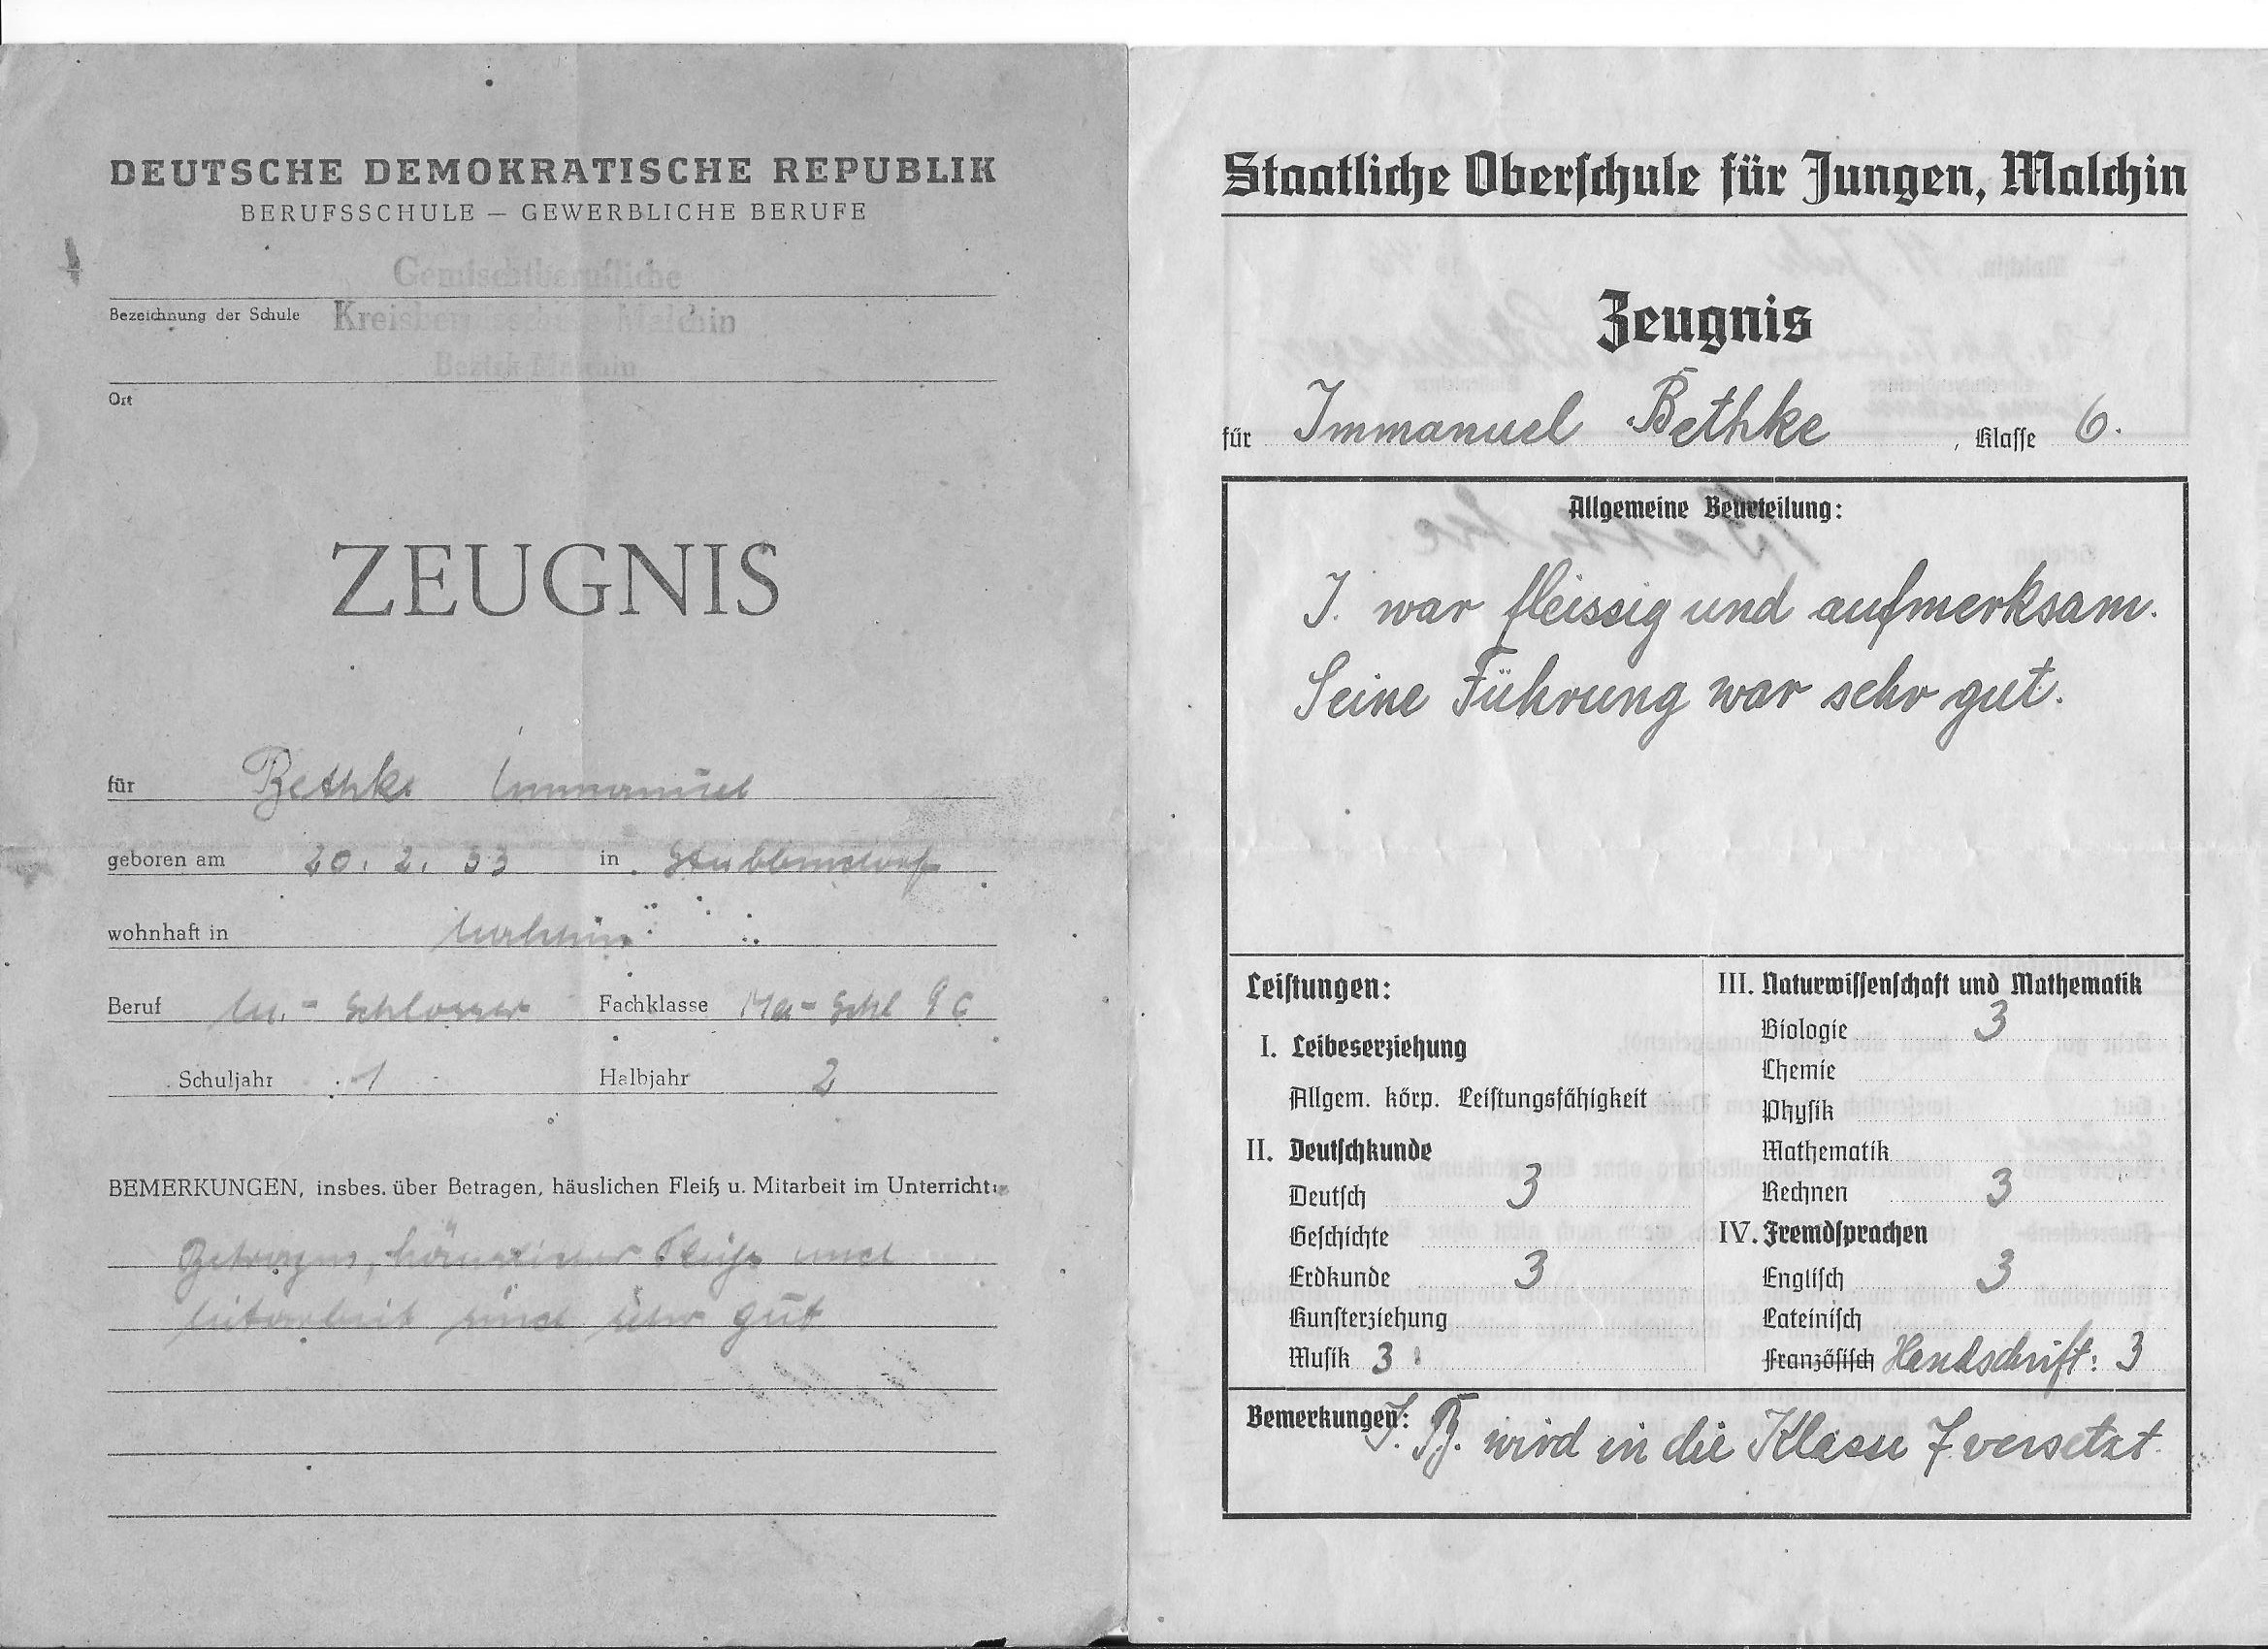 DEUTSCHE DEMOKRATISCHE REPUBLIK
BERUFSSCHULE – GEWERBLICHE BERUFE
Gemischtberufliche
Bezeichnung der Schule Kreisberufsschule Malchin
Ort
ZEUGNIS
für Bethke Immanuel
geboren am 20. 2. 33 in Stubbendorf
wohnhaft in Malchin
Beruf M.- Schlosser Fachklasse Ma- Schl 9c
Schuljahr 1 Halbjahr 2
BEMERKUNGEN, insbes. über Betragen, häuslichen Fleiß u. Mitarbeit im Unterricht:
Betragen, häuslicher Fleiß und
Mitarbeit sind sehr gut
Staatliche Oberschule für Jungen, Malchin
Zeugnis
für Immanuel Bethke, Klasse 6.
Allgemeine Beurteilung:
I. war fleissig und aufmerksam.
Seine Führung war sehr gut.
Leistungen:
I. Leibeserziehung
Allgem. körp. Leistungsfähigkeit
II. Deutschkunde
Deutsch 3
Geschichte
Erdkunde 3
Kunsterziehung
Musik 3
III. Naturwissenschaft und Mathematik
Biologie 3
Chemie
Physik
Mathematik
Rechnen 3
IV. Fremdsprachen
Englisch 3
Lateinisch
Französisch Handschrift: 3
Bemerkungen: I. B. wird in die Klasse 7 versetzt